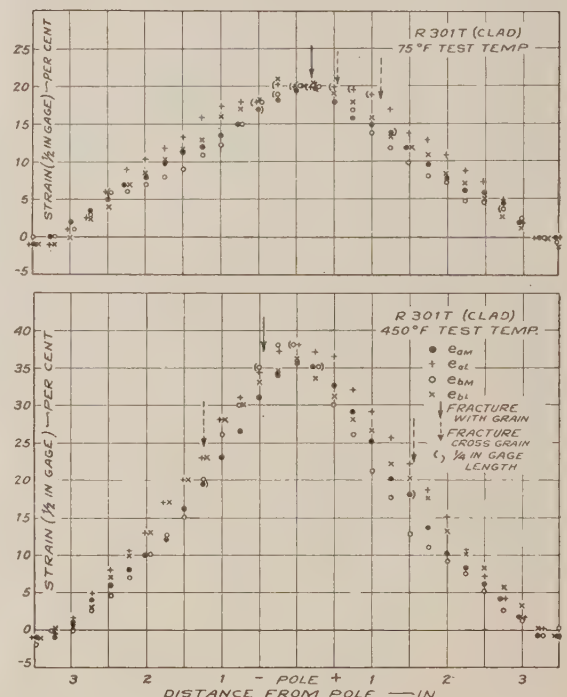 R 301T (CLAD)
75°F TEST TEMP
STRAIN (1/2 IN GAGE) — PER CENT
25
20
15
10
5
0
-5
R 301T (CLAD)
450°F TEST TEMP.
● eaM
+ eaL
○ ebM
× ebL
FRACTURE
WITH GRAIN
FRACTURE
CROSS GRAIN
( ) 1/4 IN GAGE
LENGTH
STRAIN (1/2 IN GAGE) — PER CENT
40
35
30
25
20
15
10
5
0
-5
3 2 1 - POLE + 1 2 3
DISTANCE FROM POLE — IN